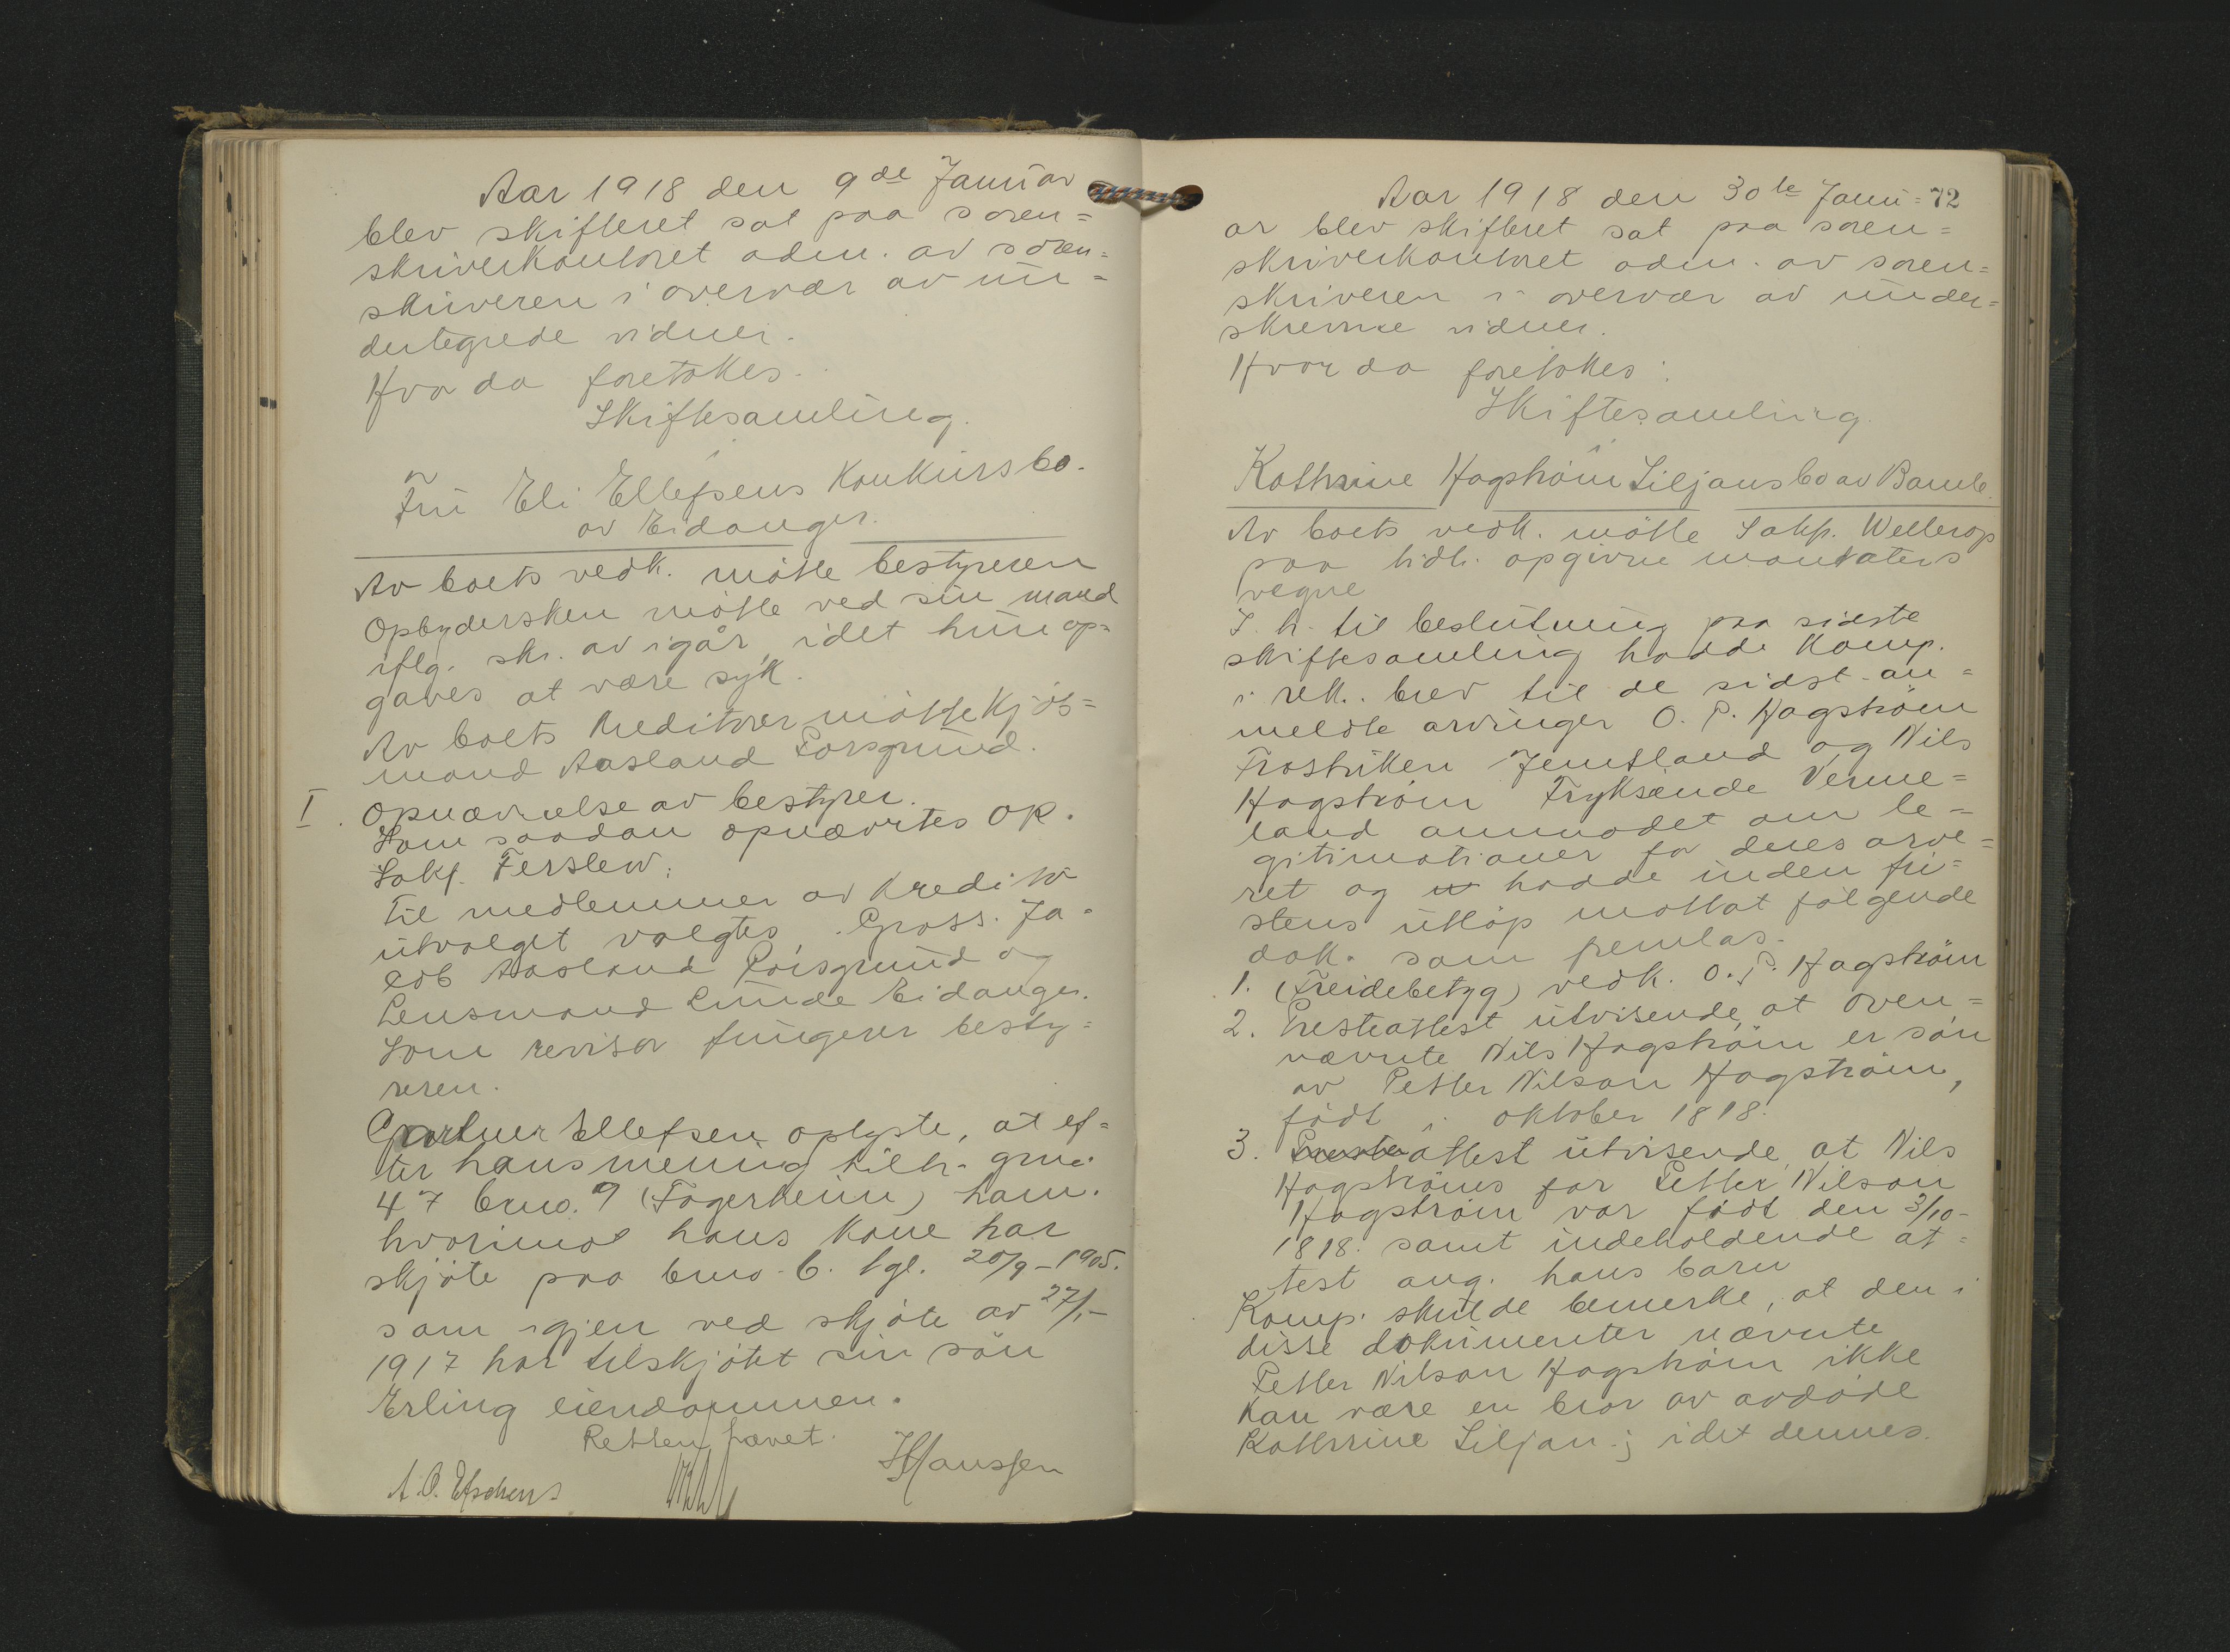 Aar 1918 den 9de Januar
blev skifteret sat paa soren=
skriverkontoret adm. av soren=
skriveren i overvær av un=
dertegnede vidner.
Hvor da foretokes.
Skiftesamling
i
Fru Eli Ellefsens Konkursbo.
av Eidanger.
Av boets vedk. møtte bestyreren
Opbydersken møtte ved sin mand
iflg. skr. av igår, idet hun op=
gaves at være syk.
Av boets kreditorer møtte Kjøb=
mand Aasland Porsgrund.
I. Opnævnelse av bestyrer.
Som saadan opnævntes OR.
Sakf. Ferslew.
Til medlemmer av kreditor
utvalget valgtes Gross. Ja=
cob Aasland Porsgrund og
Lensmand Lunde Eidanger.
Som revisor fungerer besty=
reren.
Gartner Ellefsen oplyste, at ef=
ter hans mening tilh. gno.
47 bno. 9 (Fagerheim) ham.
hvorimot hans kone har
skjøte paa bno. 6. tgl. 20/9-1905.
som igjen ved skjøte av 27/1-
1917 har tilskjøtet sin søn
Erling eiendommen.
Retten hævet.
Hanssen
A. O. Eschens
Aar 1918 den 30te Janu= 72
ar blev skifteret sat paa soren=
skriverkontoret adm. av soren=
skriveren i overvær av under=
skrevne vidner.
Hvor da foretokes:
Skiftesamling
i
Kathrine Hagstrøm Siljans bo av Bamle.
Av boets vedk. møtte Sakf. Wellerop
paa tidl. opgivne mandaters
vegne
I h. til beslutning paa sidste
skiftesamling hadde Komp.
i rek. brev til de sidst an=
meldte arvinger O. P. Hagstrøm
Frostviken Jemtland og Nils
Hagstrøm Fryksende Verme=
land anmodet om le=
gitimationer for deres arve=
ret og hadde inden fri=
stens utløp mottat følgende
dok. som fremlas.
1. (Freidebetyg) vedk. O. P. Hagstrøm
2. Presteattest utvisende, at oven=
nævnte Nils Hagstrøm er søn
av Petter Nilson Hagstrøm,
født i oktober 1818.
3. Presteattest utvisende, at Nils
Hagstrøms far Petter Nilson
Hagstrøm var født den 3/10-
1818. samt indeholdende at=
test ang. hans barn
Komp. skulde bemerke, at den i
disse dokumenter nævnte
Petter Nilson Hagstrøm ikke
kan være en bror av avdøde
Kathrine Siljan; idet dennes